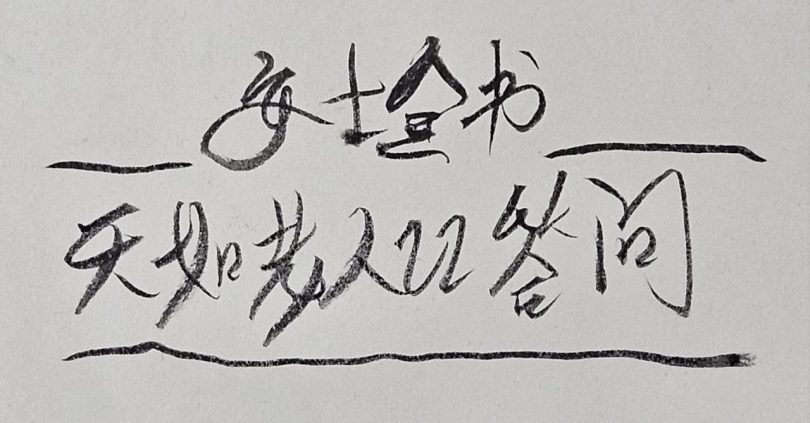 安士全书
天如老人22答问